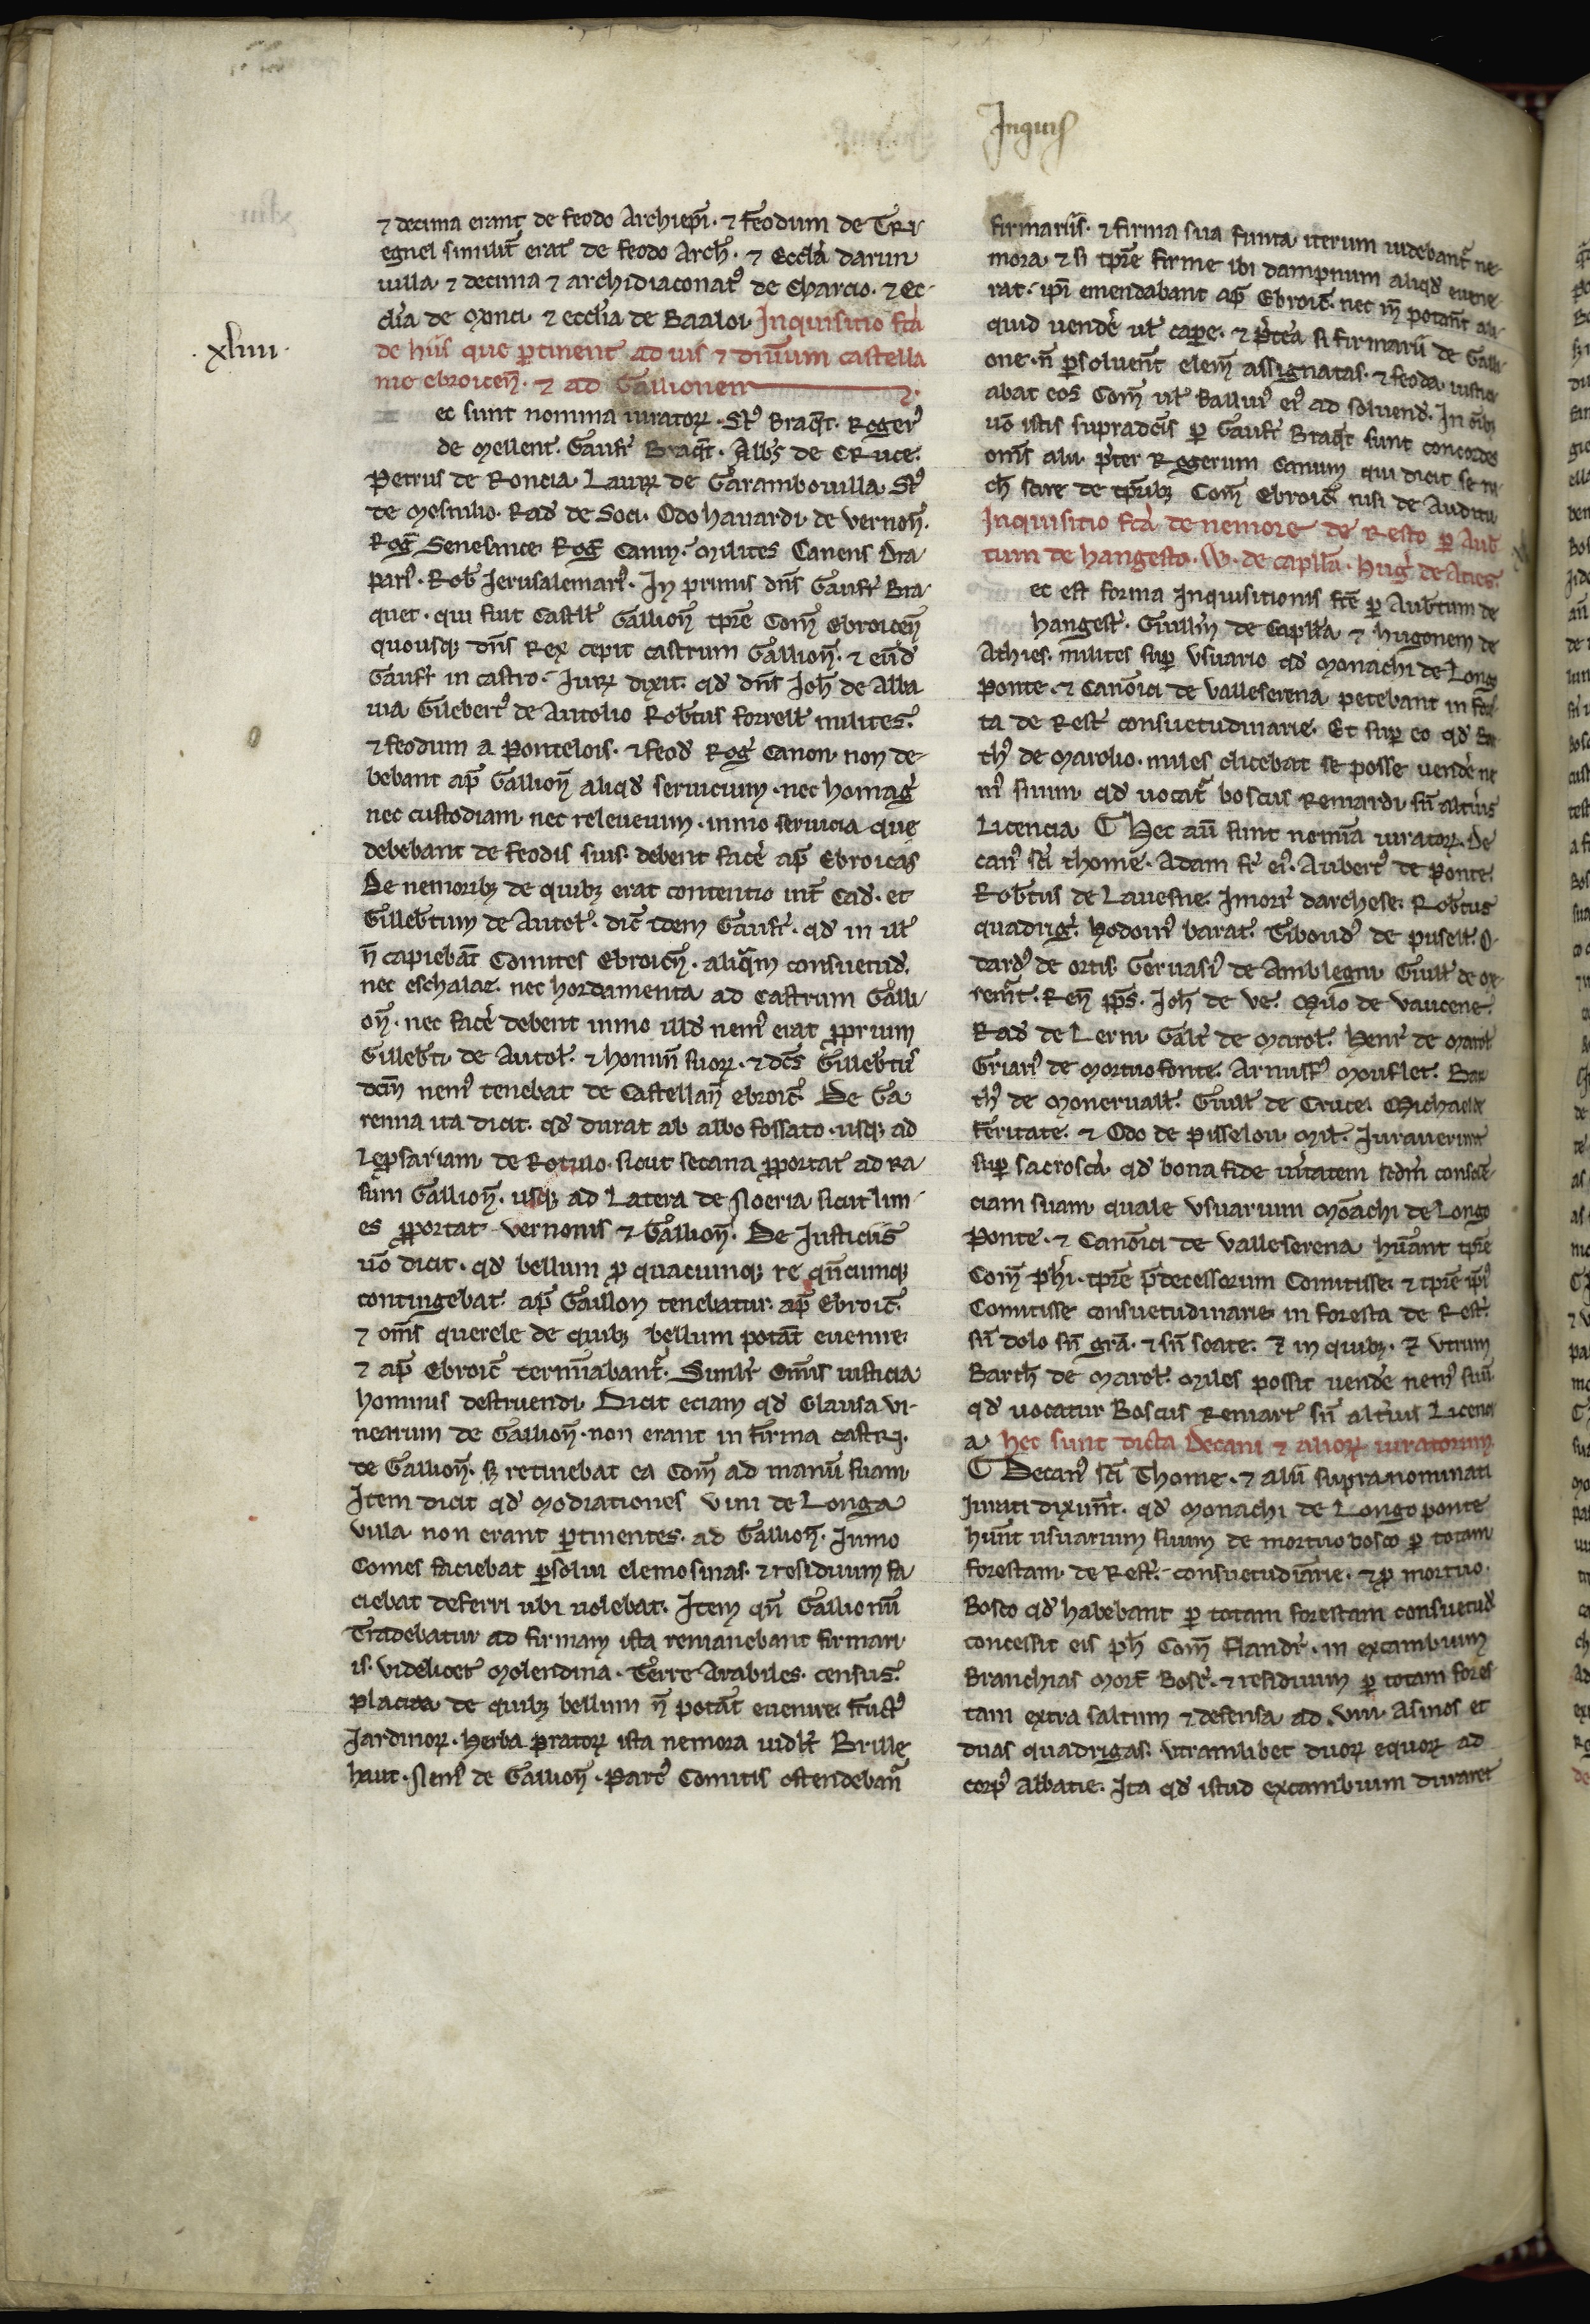 Inquis
⁊ decima erant de feodo Archiepī. ⁊ feodum de Tri
egnel similit̄ erat de feodo Arch̄. ⁊ Eccl̄a darun
uilla ⁊ decima ⁊ archidiaconatꝰ de Charcio. ⁊ Ec
cl̄ia de Oxnci. ⁊ eccl̄ia de Baaloi. Inquisitio fc̄a
.xliiii.
de hiis que ꝑtinent ad ius ⁊ diuium castella
nie ebroicen̄. ⁊ ad Gallionem
ec sunt nomina iuratoꝝ. Stꝰ Braq̄t. Rogerꝰ
de Mellent. Gaufr̄ Braq̄t. Albꝰ de CRuce.
Petrus de Roncia. Lauꝝ de Garambouilla. Stꝰ
de Mesnilio. Rad̄ de Soci. Odo hauardi. de vernon̄.
Roḡ Senesmce. Roḡ Canuꝰ. milites Canens Dra
parꝰ. Rob̄ Jerusalemarꝰ. In primis dn̄s Gaufr̄ Bra
quet. qui fuit Castell̄ Gallion̄ tp̄re Com̄ Ebroicen̄
quousqꝫ dn̄s Rex cepit castrum Gallion̄. ⁊ eund̄
Gaufr̄ in castro. Iurꝝ dixit. qd̄ dn̄s Joh̄ de Alba
uia Gilebertꝰ de Autolio Rob̄tus forrell̄ milites.
⁊ feodum a Pontelois. ⁊ feod̄ Roḡ Canon. non de
bebant ap̄ Gallion̄ aliqd̄ seruicium. nec homaḡ
nec custodiam nec releueium. immo seruicia que
debebant de feodis suis debent facē ap̄ Ebroicas
De nemoribꝫ de quibꝫ erat contentio int̄ Cad̄. et
Gilleb̄tum de Autol̄. dic̄ idem Gaufr̄. qd̄ in ill̄
n̄ capiebāt Comites Ebroicen̄. aliq̄m consuetud̄.
nec eschalaz. nec hordamenta ad castrum Galli
on̄. nec facē debent immo illd̄ nemꝰ erat ꝓprium
Gilleb̄ti de Autol̄. ⁊ homin̄ suoꝝ. ⁊ dc̄s Gilleb̄tꝰ
dcm̄ nemꝰ tenebat de Castellan̄ ebroic̄. De Ga
renna ita dicit. qd̄ durat ab albo fossato. usqꝫ ad
Leꝑsariam de Rotulo. sicut secana ꝓportat ad Ra
sum Gallion̄. usqꝫ ad Latera de Noeria sicut lim
es ꝓportat vernonis ⁊ Gallion̄. De Iusticiis
uo᷒ dicit. qd̄ bellum ꝓ quacumqꝫ re qn̄cumqꝫ
contingebat. ap̄ Gaillon tenebatur. ap̄ Ebroic̄.
⁊ om̄s querele de quibꝫ bellum potāt euenire
⁊ ap̄ Ebroic̄ terminabant̄. Simil̄r Om̄is iusticia
hominis destruendi. Dicit eciam qd̄ Clausa vi
nearum de Gallion̄. non erant in firma castri.
de Gallion̄. sꝫ retinebat ea Com̄ ad manū suam
Item dicit qd̄ Modiationes vini de Longa
villa non erant ꝑtinentes. ad Gallion̄. Immo
Comes faciebat ꝑsolui elemosinas. ⁊ residuum fa
ciebat deferri ubi uolebat. Item qn̄ Gallionū
Tradebatur ad firmam ista remanebant firmari
is. videlicet Molendina. Terre Arabiles. census.
placita de quibꝫ bellum n̄ potāt euenire. fructꝰ
Jardinoꝝ. herba pratoꝝ ista nemora uidl̄t Brille
haut. Nemꝰ de Gallion̄. Partꝰ Comitis ostendebant̄
firmariis. ⁊ firma sua finita iterum uidebant̄ ne
mora. ⁊ si tp̄re firme ibi dampnum aliqd̄ euene
rat. ip̄i emendabant ap̄ Ebroic̄. nec in̄ potant̄ ali
quid uendē ul̄ cape. ⁊ p̄tea si firmarii de Galli
one. n̄ ꝑsoluent̄ elem̄ assignatas. ⁊ feoda. iustici
abat eos Com̄ ul̄ Balliuꝰ eiꝰ ad soluend̄. In oībꝫ
uo᷒ istis supradc̄is ꝑ Gaufr̄ Braq̄t sunt concordes
om̄s alii. p̄ter Rogerum Canum qui dicit se ni
ch̄ scire de tp̄ribꝫ Com̄ Ebroic̄ nisi de Auditu
Inquisitio fc̄a de nemore de Resto ꝑ Aub̄
tum de hangesto. W. de capll̄a. huḡ de Aties.
ec est forma Inquisitionis fc̄e ꝑ Aub̄tum de
hangest̄. Guill̄m de Capll̄a ⁊ hugonem de
Athies. milites suꝑ vsuario qd̄ Monachi de Long
Ponte. ⁊ Canōici de valleserena petebant in for
ta de Rest̄ consuetudinarie. Et suꝑ eo qd̄ Bar
thꝰ de Marolio. miles dicebat se posse uendē ne
mꝰ suum qd̄ uocat̄ boscus Remardi. sn̄ altiꝰ
Licencia. Hec au᷒ sunt nomīa iuratoꝝ. De
canꝰ sc̄i thome. Adam fr̄ eiꝰ. Aubertꝰ de Ponte.
Rob̄tus de Lauesne. Imorr̄ darchese. Rob̄tus
quadriḡ. hodoinꝰ barat. Tiboudꝰ de pusell̄. O
dardꝰ de ortis. Geruasiꝰ de Amblegni. Guill̄ de ox
rem̄t. Ren̄ pp̄s. Joh̄ de ve. Quo de vaucene.
Rad̄ de Lerni. Galt̄ de Marol̄. Henr̄ de Marol̄
Griarꝰ de Mortuofonte. Arnulfꝰ Mouflet. Bar
thꝰ de Moneruall̄. Guill̄ de Cruce. Michael de
feritate. ⁊ Odo de pisselou. mil̄. Iurauerunt
suꝑ sacrosc̄a. qd̄ bona fide ueritatem scdm̄ consciē
ciam suam quale vsuarium Mōachi de Longo
Ponte. ⁊ Canōici de valleserena hūant tp̄re
Com̄ phi. tp̄re p̄decessorum Comitisse. ⁊ tp̄re ip̄iꝰ
Comitisse consuetudinarie. in foresta de Rest̄.
sn̄ dolo sn̄ grā. ⁊ sn̄ soate. ⁊ in quibꝫ. ⁊ vtrum
Barth̄ de Marol̄. miles possit uendē nemꝰ suū
qd̄ uocatur Boscus Remart̄ sn̄ altiꝰ Licenci
a. hec sunt dicta Decani ⁊ alioꝝ iuratorum
Decanꝰ sc̄i Thome. ⁊ alii supranominati
Iurati dixunt̄. qd̄ monachi de Longoponte
hūnt usuarium suum de mortuo bosco ꝑ totam
forestam. de Rest̄. consuetudinarie. ⁊ ꝓ mortuo
Bosco qd̄ habebant ꝑ totam forestam consuetud̄
concessit eis ph̄ Com̄ flandr̄. in excambium
Branchias Mort̄ Bosc̄. ⁊ residuum ꝑ totam fores
tam extra saltum ⁊ defensa ad. viii. Asinos et
duas quadrigas. vtramlibet duoꝝ equoꝝ ad
corpꝰ Abbatie. Ita qd̄ istud excambium duraret